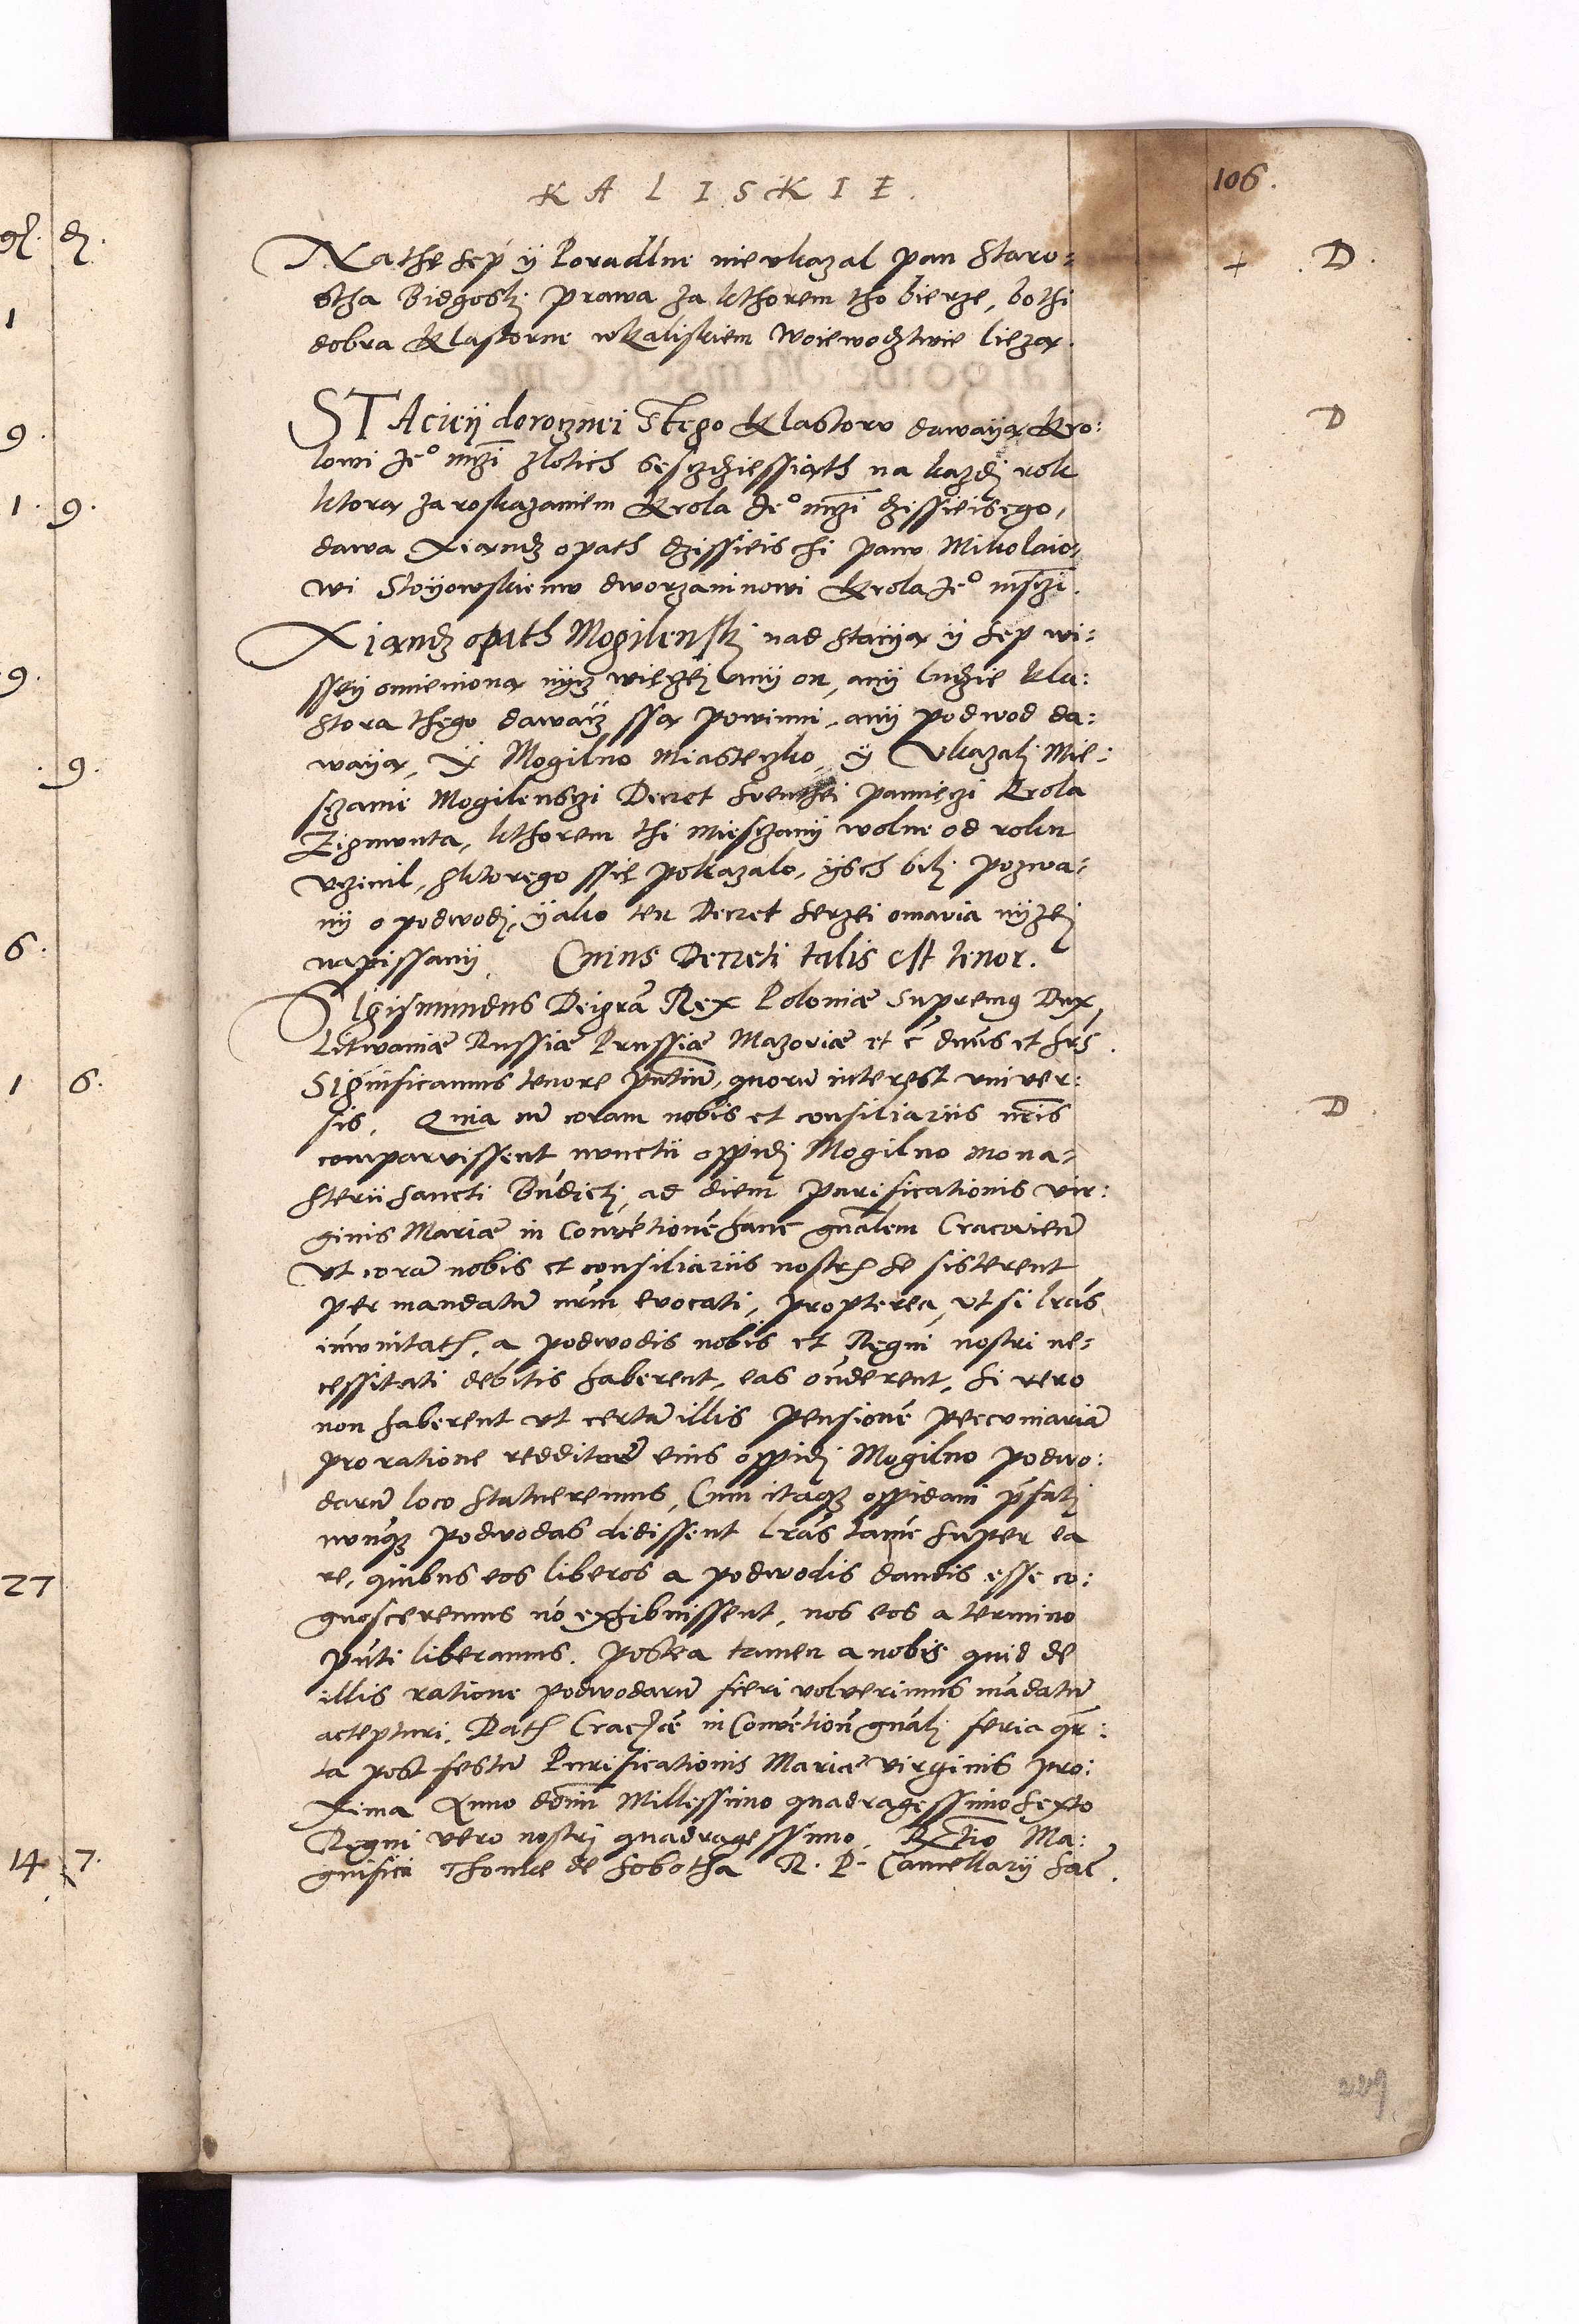 K A L I S K I E .
106.
Nathe sep y Poradlne nie vkazal pan Staro:
stha Bidgoski prawa za kthorem tho bierze, bo thi
dobra Klastorne wkaliskiem Woiewodztwie lieza.
+ D.
STAcieÿ doroznei Stego Klastoru dawaÿa Kro:
lowi Je° mczi zlotich seszdziessiath na kazdi rok
ktora za roskazaniem Krola Je° mczi dzissieisego,
dawa Xiandz opath dzissieischi panu Mikolaio:
wi Stoÿowskiemu dworzaninowi Krola Je° msczi.
D
Xiandz opath Mogilenski nad stacÿa ÿ sep wi:
sseÿ omieniona nÿcz wieczei anÿ on, anÿ ludzie kla:
stora thego dawaÿcz ssa powinni, anÿ podwod da:
waÿa, X Mogilno Miasteczko, ÿ Vkazali Mie:
sczanie Mogilensczi Decret swenthei pamięczi Krola
Zigmunta, kthorem thi miesczanÿ wolne od roku
vczinil, sktorego ssie pokazalo, ÿsch bili pozwa:
nÿ o podwodi, ÿako ten Decret serzei omavia nÿzei
napissanÿ. Cuius Decreti talis est tenor.
SIgismundus Dei gra Rex Poloniæ Supremus Dux
Litwaniæ Russiæ Prussiæ Mazoviæ et c dnus et hrs.
Significamus tenore pntium, quoru interest vniver:
sis. Quia cu coram nobis et consiliariis nris
D
comparuissent nunctii oppidi Mogilno mona:
sterii Sancti Bndicti, ad diem Purificationis vir:
ginis Mariæ in Conventione hanc gnalem Cracovien
vt cora nobis et consiliariis nostris se sisterent
per mandatu nrm evocati, propterea, vt si lras
imunitatis, a podwodis nobis et Regni nostri ne:
cessitati debitis haberent, eas onderent, si vero
non haberent vt certa illis pensione pecuniaria
pro ratione reddituu eius oppidi Mogilno podwo:
daru loco statueremus, Cum itaqz oppidani pfati
nunqz podwodas dedissent lras tame super ea
re, quibus eos liberos a podwodis dandis esse co:
gnosceremus no exhibuissent, nos eos a termino
pnti liberamus. Postea tamen a nobis quid de
illis ratione podwodaru fieri voluerimus madatu
accepturi. Datis Craciæ in Conventione gnali feria qr:
ta post festu Purificationis Mariæ virginis pro:
xima Anno domini Millessimo quadragessimo sexto
Regni vero nostri quadragessimo, Rtio Ma:
gnifici Thomæ de Sobotha R. P. Cancellarÿ fac.
229